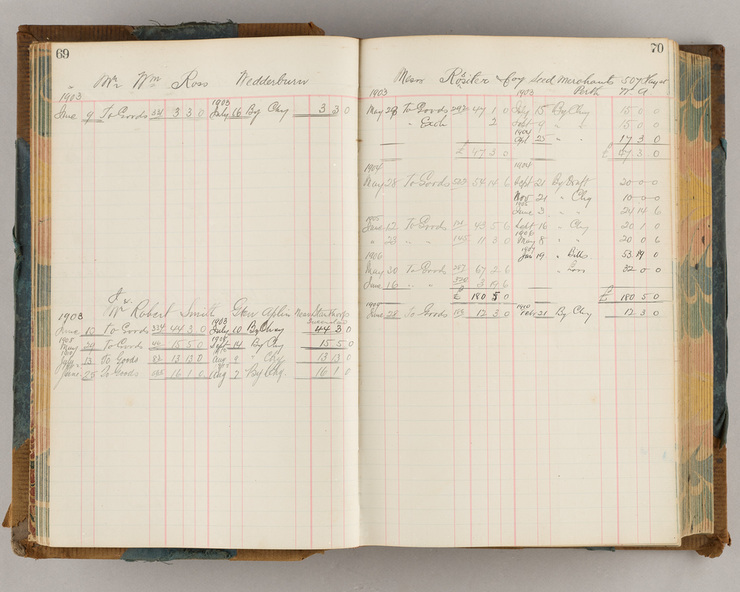 69
Mr Wm Ross Wedderburn
1903 1903
June 9 To Goods 3 3 0 July 16 By Chq 3 3 0
Mr Robert Smith Glen Aplin
1903 1903
June 10 To Goods 44 3 0 July 10 By Chq 44 3 0
May 20 To Goods 15 5 0 Sept 14 By Chq 15 5 0
13 To Goods 82 13 13 0 Aug 9 " Chq 13 13 0
25 To Goods 16 1 0 Aug 7 By Chq 16 1 0
70
Messrs Rositer & Coy Seed Merchants 507 Hay St
Perth W. A
1903 1903
May 29 To Goods 47 1 0 July 15 By Chq 15 0 0
" Exch 2 Sept 9 " " 15 0 0
1904
25 " " 17 3 0
£ 47 3 0 £ 47 3 0
1904 1904
May 28 To Goods 54 14 6 Sept 21 By Draft 20 0 0
Nov 21 " Chq 10 0 0
June 3 " " 24 14 6
1905
June 12 To Goods 43 5 6 Sept 16 " Chq 20 1 0
1906
" 23 " " 11 3 0 May 8 " " 20 0 6
1906 1907
May 30 To Goods 67 2 6 Jan 19 " Bills 53 19 0
June 16 " " 3 19 6 " Loss 32 0 0
£ 180 5 0 £ 180 5 0
June 28 To Goods 12 3 0 Feb 21 By Chq 12 3 0